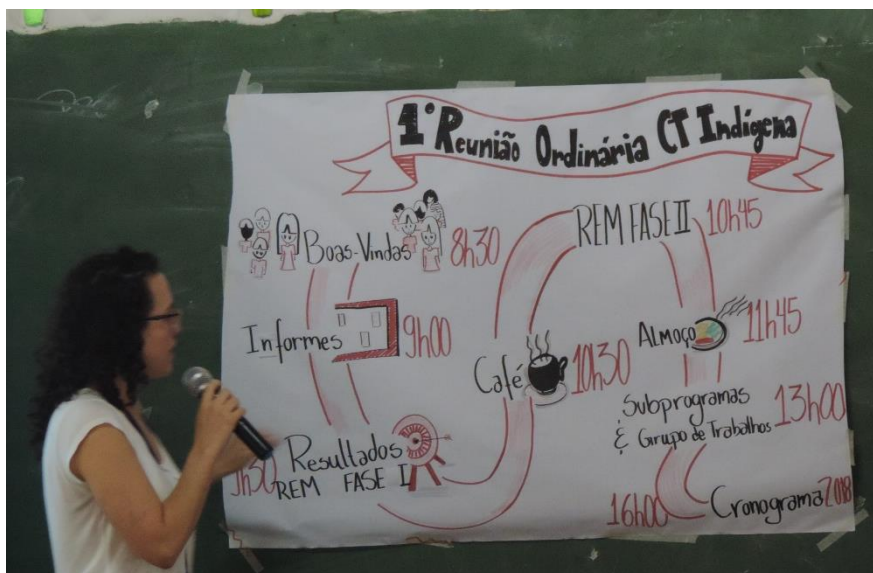 1ª Reunião Ordinária CT Indígena
Boas-Vindas 8h30
Informes 9h00
Resultados
REM FASE I
Café 10h30
REM FASE II 10h45
Almoço 11h45
Subprogramas
& Grupo de Trabalhos 13h00
16h00 Cronograma 2018